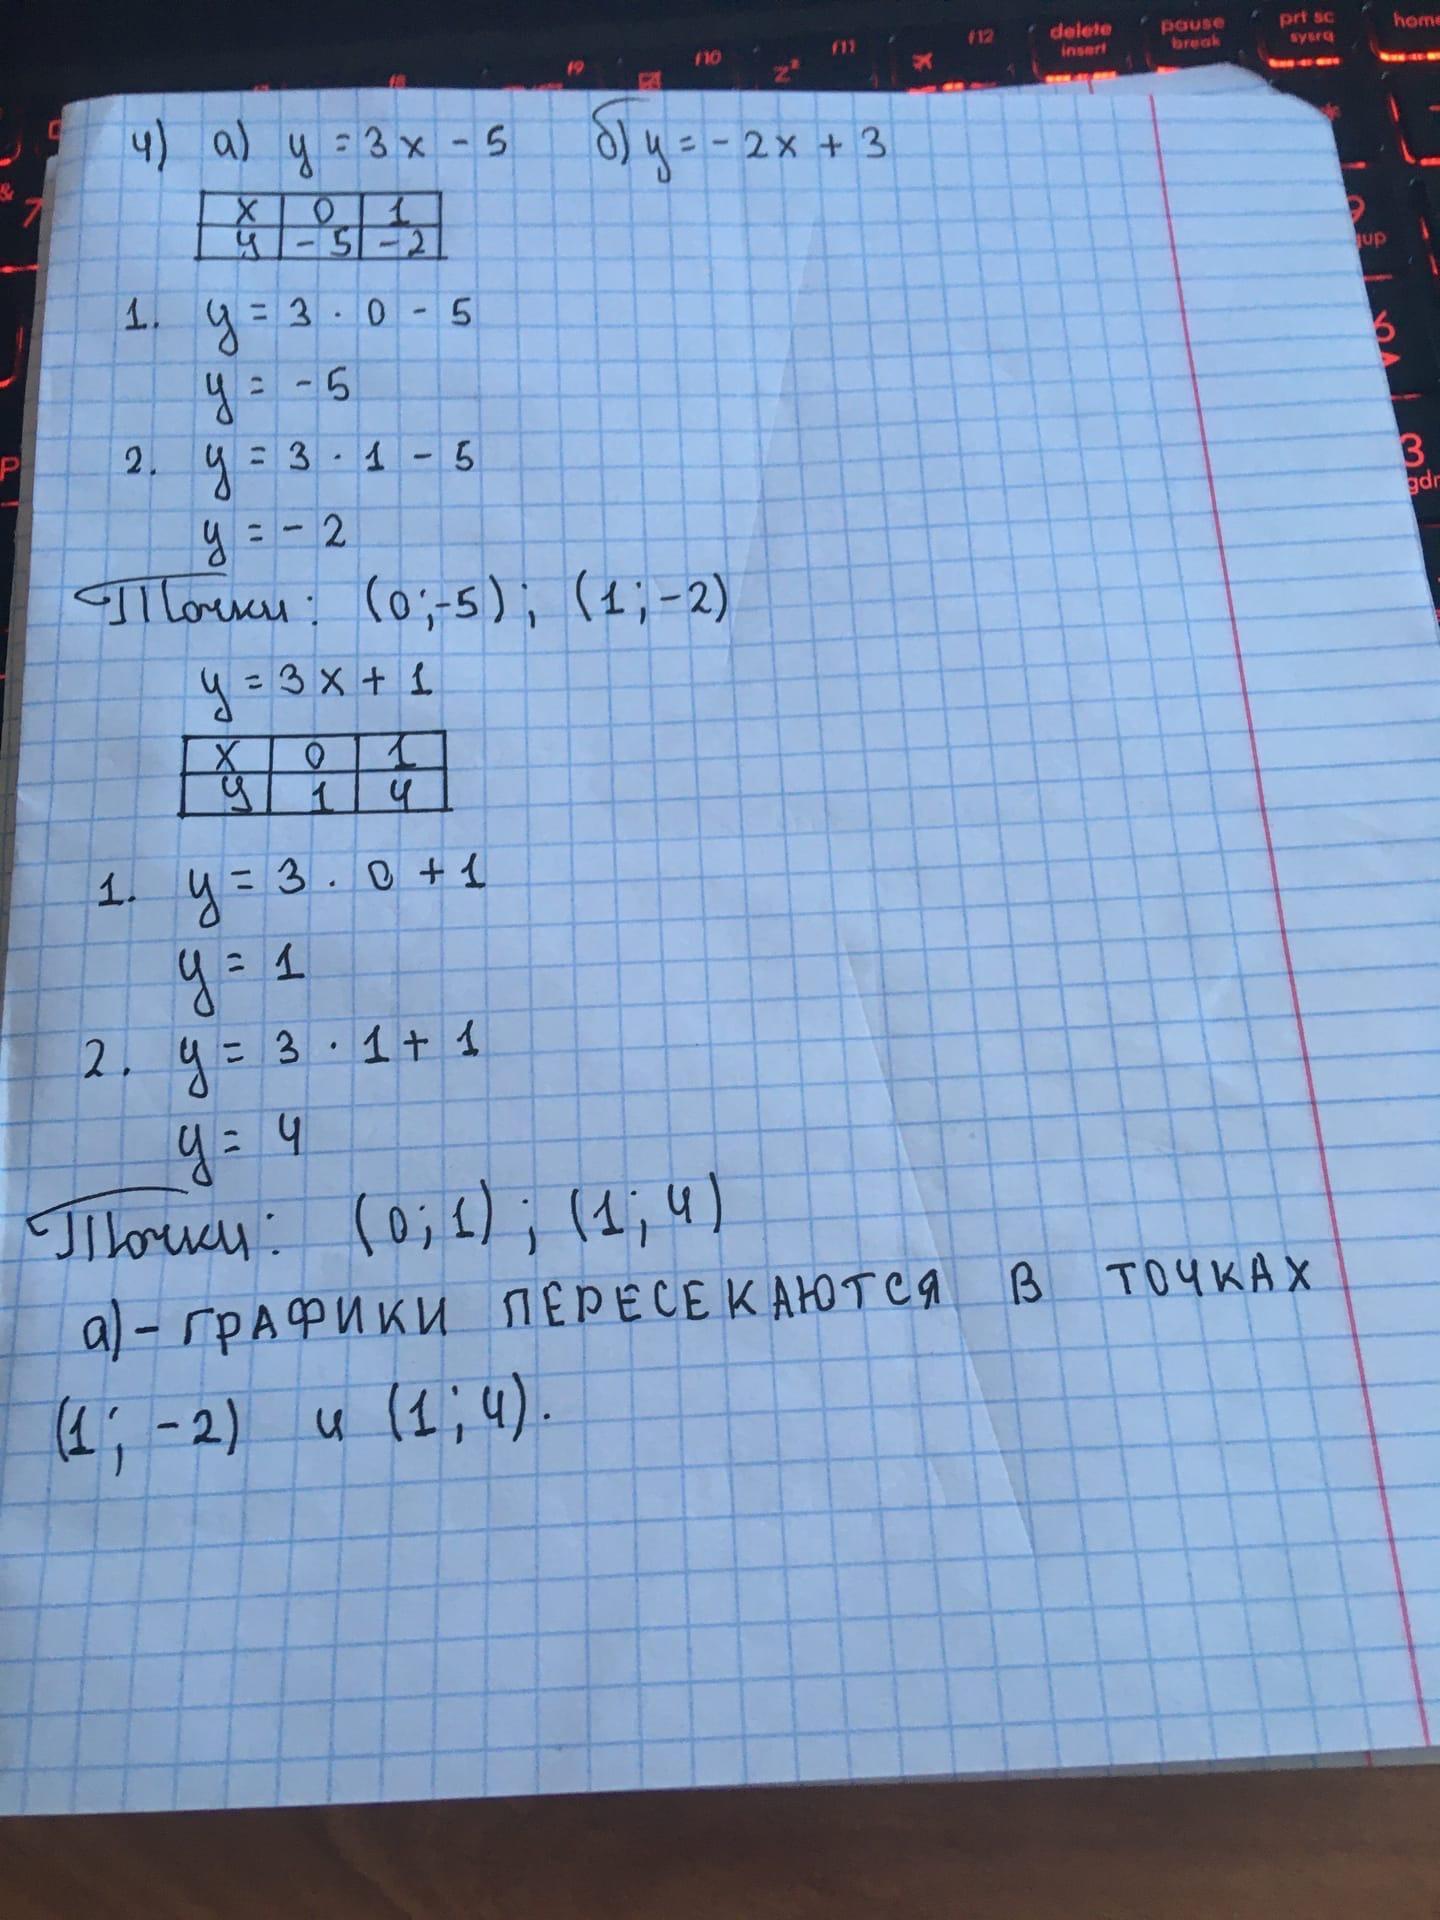 f8 f9 f10 f11 f12 delete insert pause break prt sc sysrq home
4) а) y = 3x - 5 б) y = - 2x + 3
x 0 1
y - 5 - 2
1. y = 3 · 0 - 5
y = - 5
2. y = 3 · 1 - 5
y = - 2
Точки: (0;-5); (1;-2)
y = 3x + 1
x 0 1
y 1 4
1. y = 3 · 0 + 1
y = 1
2. y = 3 · 1 + 1
y = 4
Точки: (0;1); (1;4)
а) - ГРАФИКИ ПЕРЕСЕКАЮТСЯ В ТОЧКАХ
(1; -2) и (1;4).
&
7
P
9
6
3